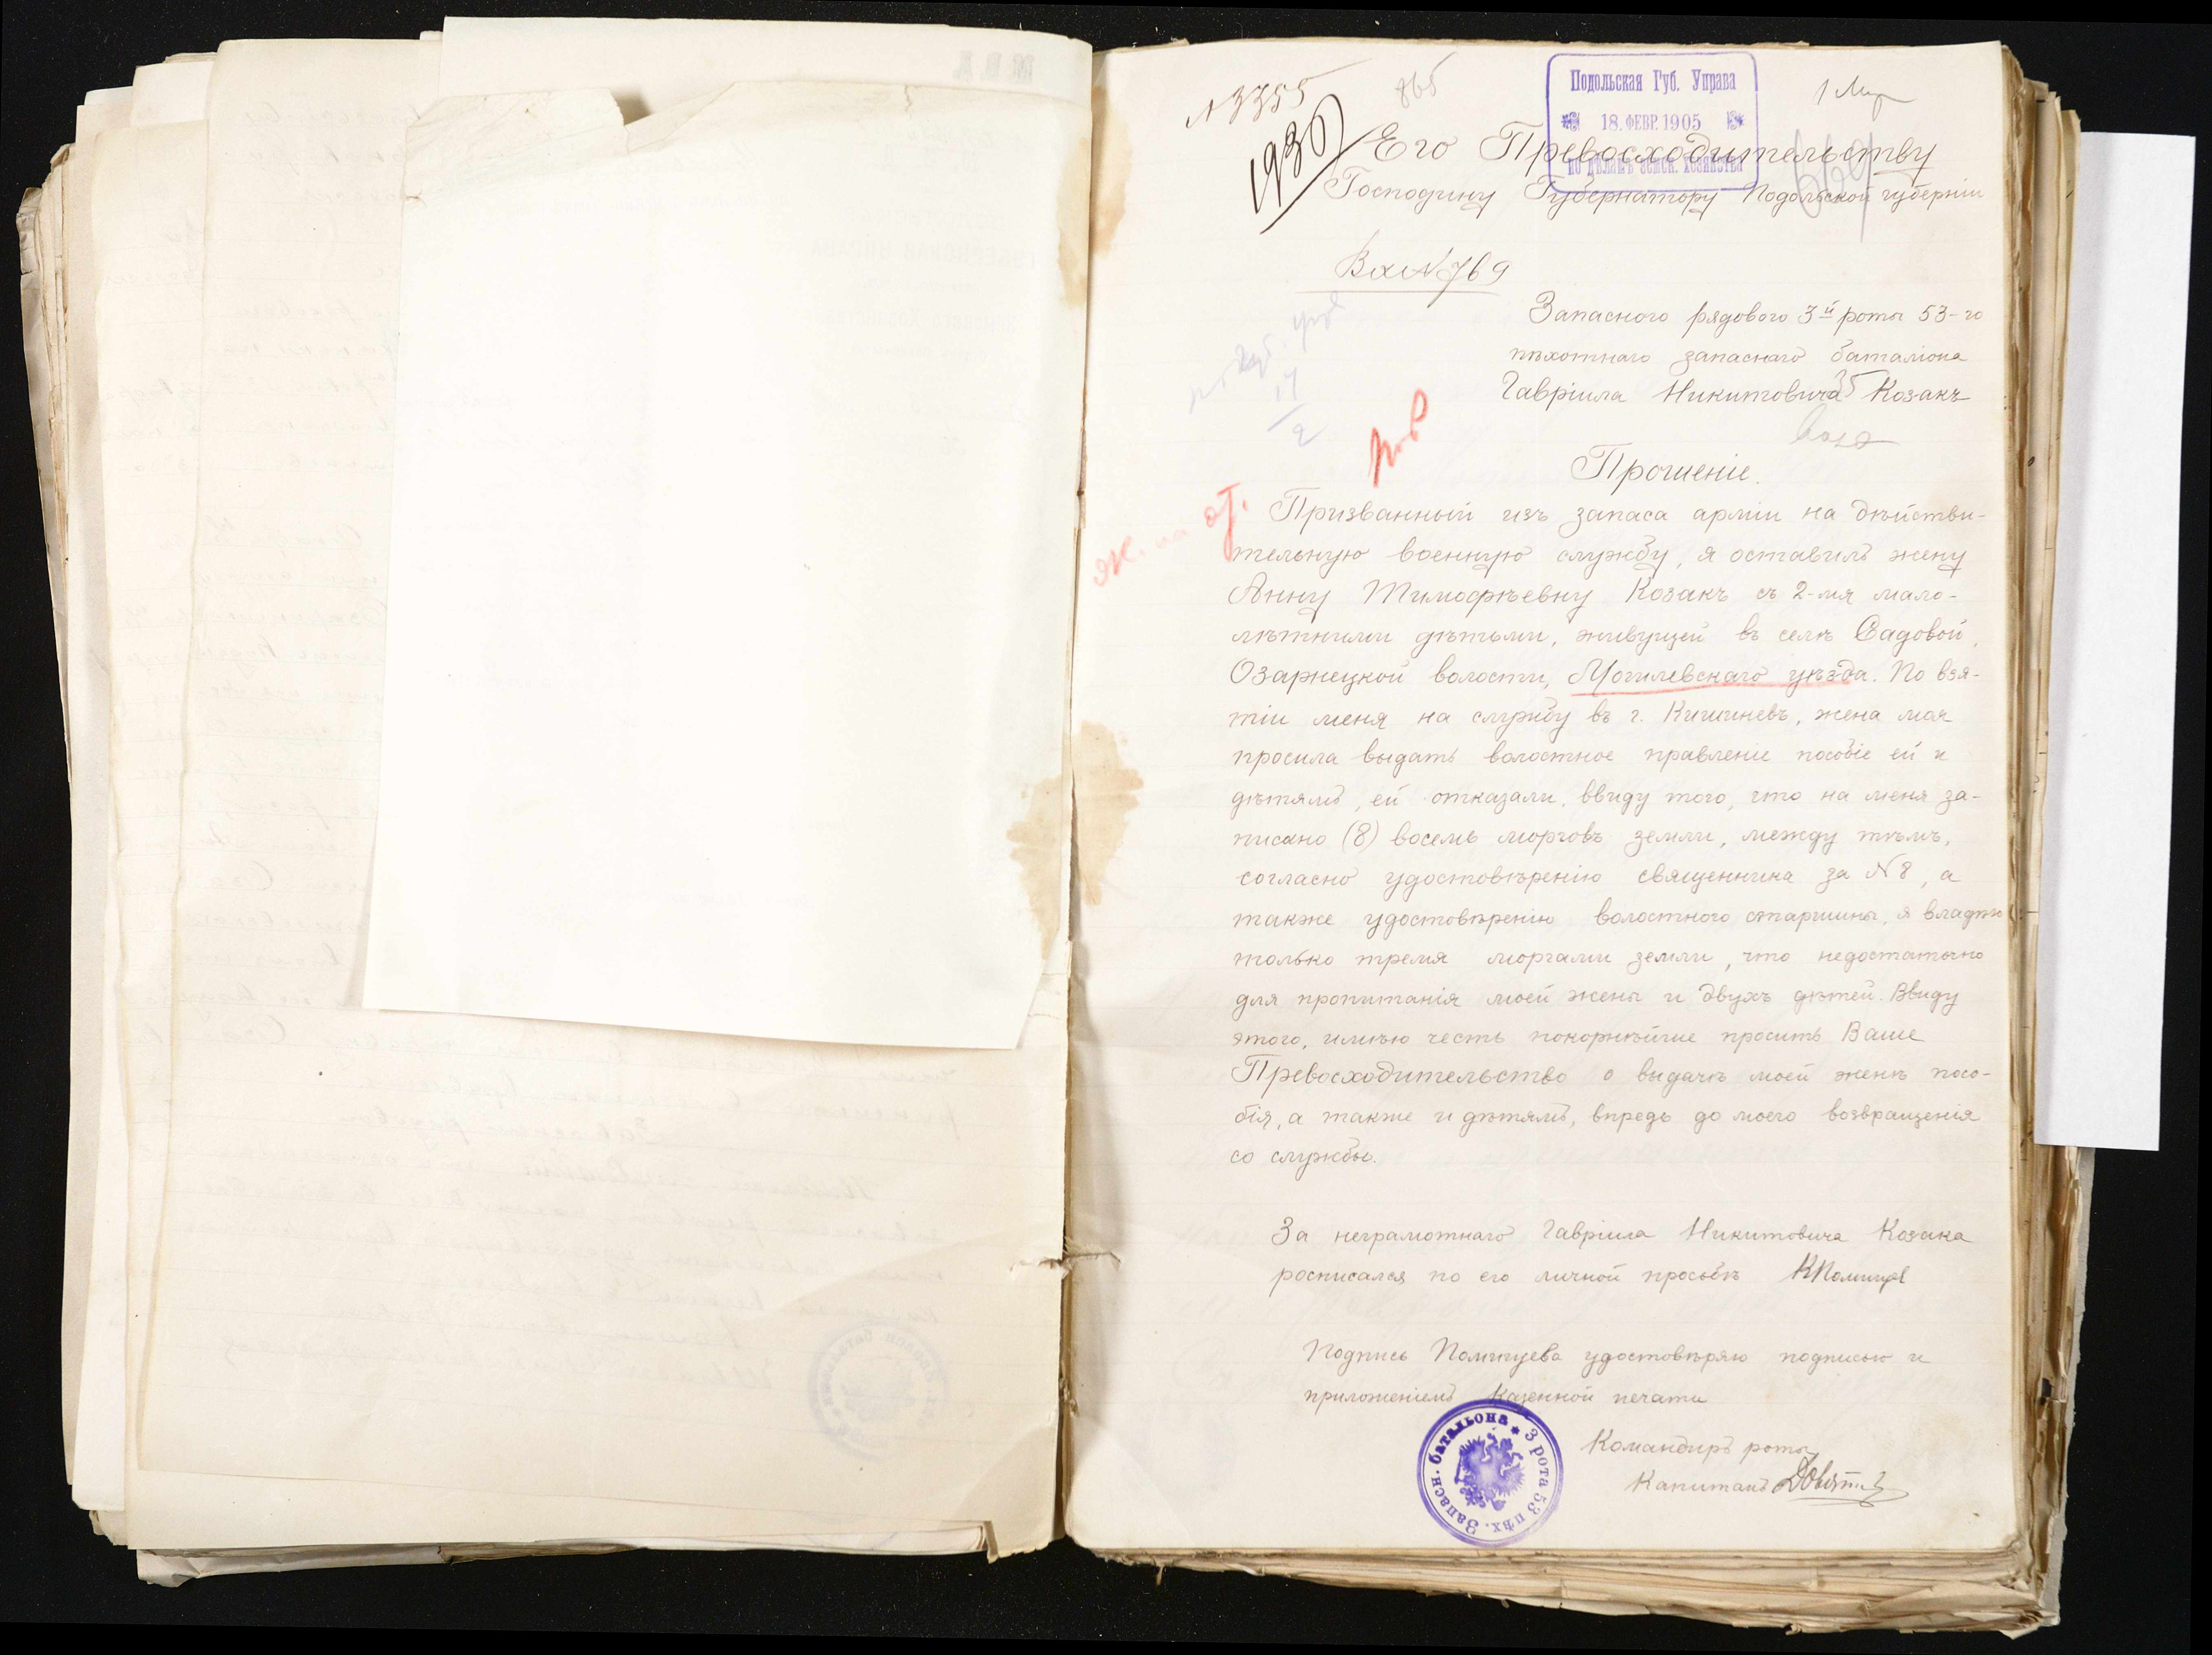 N 3355
865
Подольская Губ. Управа
18. ФЕВР. 1905
по дѣламъ земск. хозяйства
1936
Его Превосходительству
Господину Губернатору Подольской губерніи
Вх N 769
Запаснаго рядового 3й роты 53-го
пѣхотнаго запаснаго баталіона
Гавріила Никитовича Козакъ
Прошеніе.
Призванный изъ запаса арміи на дѣйстви-
тельную военную службу, я оставилъ жену
Анну Тимофѣевну Козакъ съ 2-мя мало-
лѣтними дѣтьми, живущей въ селѣ Садовой,
Озаринецкой волости, Могилевскаго уѣзда. По взя-
тіи меня на службу въ г. Кишиневъ, жена моя
просила выдать волостное правленіе пособіе ей и
дѣтямъ, ей отказали, ввиду того, что на меня за-
писано (8) восемь морговъ земли, между тѣмъ,
согласно удостовѣренію священника за N 8, а
также удостовѣренію волостного старшины, я владѣю
только тремя моргами земли, что недостаточно
для пропитанія моей жены и двухъ дѣтей. Ввиду
этого, имѣю честь покорнѣйше просить Ваше
Превосходительство о выдачѣ моей женѣ посо-
бія, а также и дѣтямъ, впредь до моего возвращенія
со службы.
За неграмотнаго Гавріила Никитовича Козака
росписался по его личной просьбѣ
Подпись удостовѣряю подписью и
приложеніемъ Казенной печати
Командиръ роты
Капитанъ
3 рота 53 пѣх. Запасн. батальона